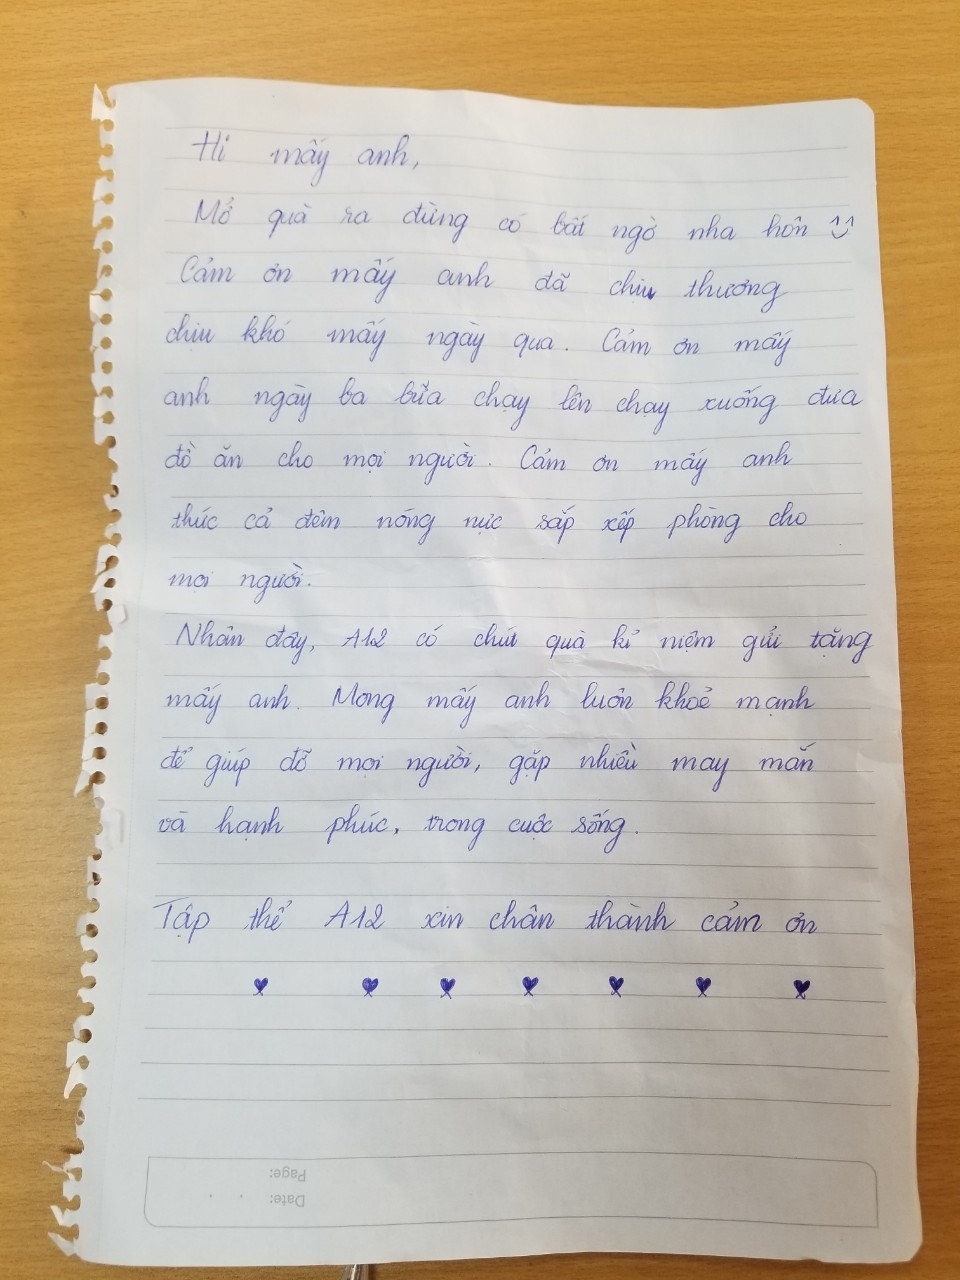 Hi mấy anh,
Mở quà ra đừng có bất ngờ nha hôn ^^
Cảm ơn mấy anh đã chịu thương
chịu khó mấy ngày qua. Cảm ơn mấy
anh ngày ba bữa chạy lên chạy xuống đưa
đồ ăn cho mọi người. Cảm ơn mấy anh
thức cả đêm nóng nực sắp xếp phòng cho
mọi người.
Nhân đây, A12 có chút quà kỉ niệm gửi tặng
mấy anh. Mong mấy anh luôn khoẻ mạnh
để giúp đỡ mọi người, gặp nhiều may mắn
và hạnh phúc, trong cuộc sống.
Tập thể A12 xin chân thành cảm ơn
♥ ♥ ♥ ♥ ♥ ♥ ♥
Page:
Date: